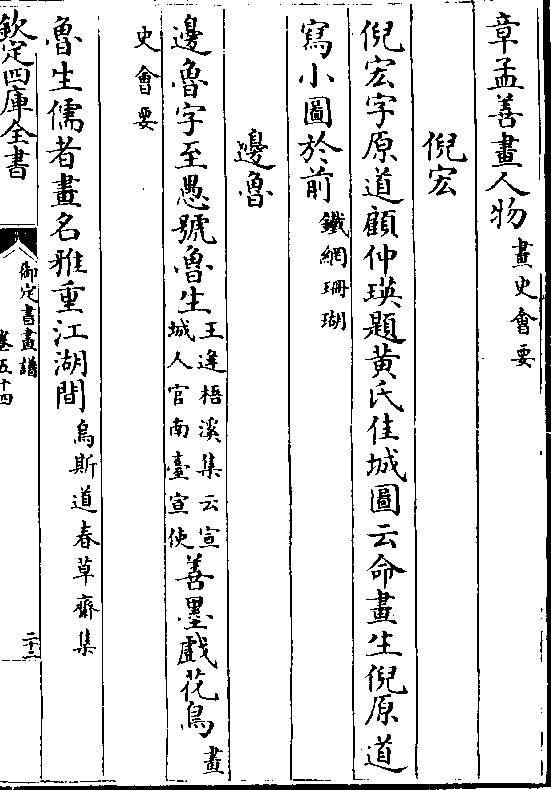 章孟善畫人物畫史會要
倪宏
倪宏字原道顧仲瑛題黄氏佳城圖云命畫生倪原道
寫小圖於前鐵網珊瑚
邊魯
邊魯字至愚號魯生王逢梧溪集云宣城人官南臺宣使善墨戲花鳥畫
史會要
魯生儒者畫名雅重江湖間烏斯道春草齋集
欽定四庫全書
御定書畫譜
卷五十四
二十二